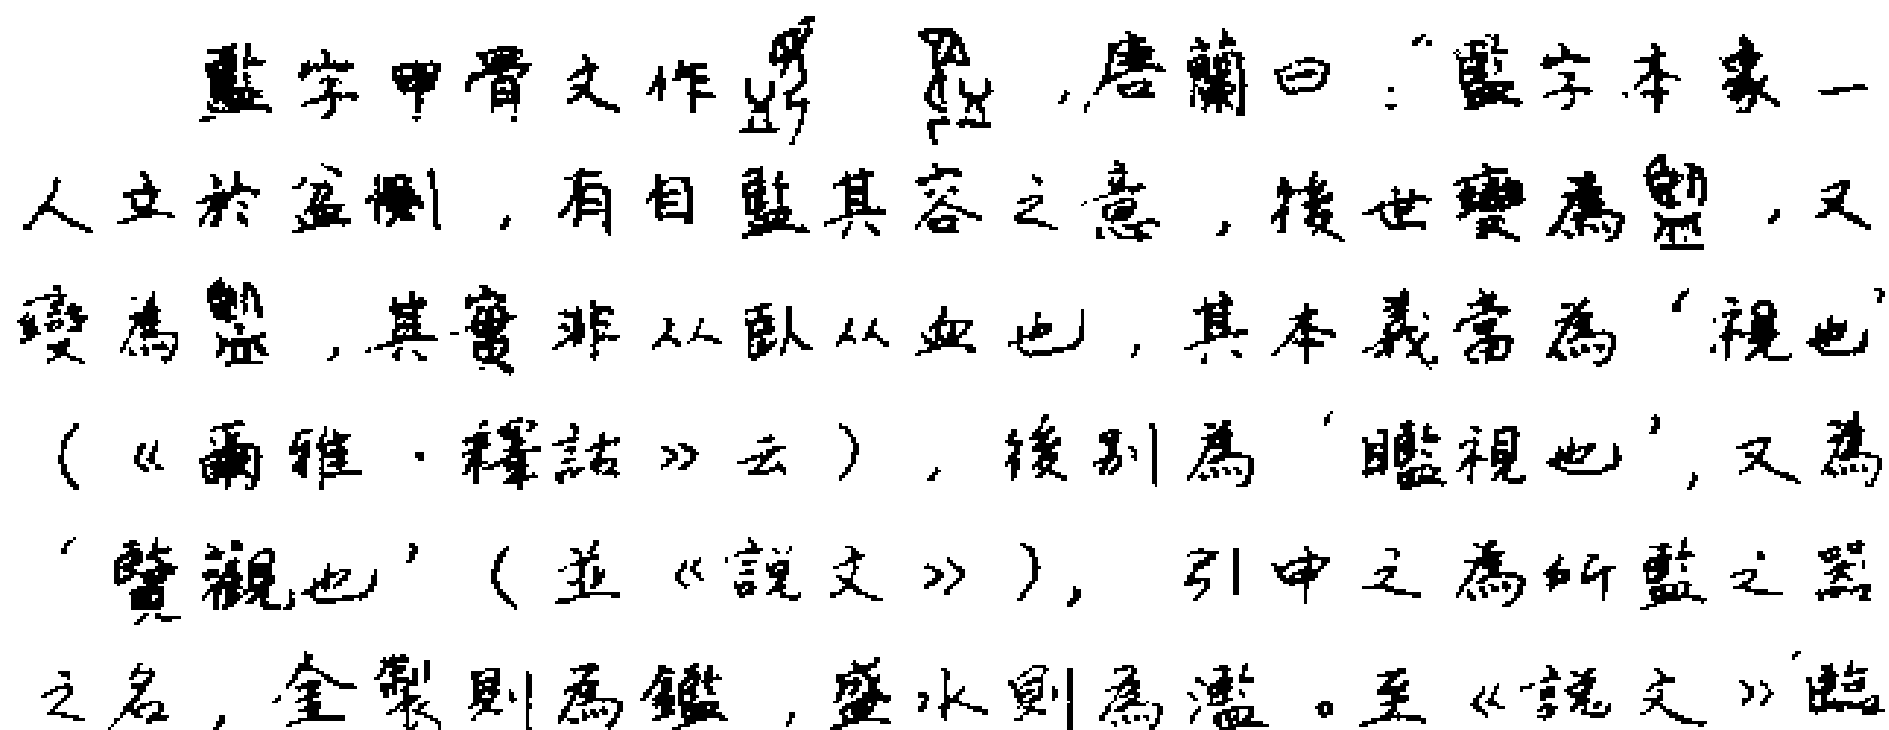 監字甲骨文作 ,唐蘭曰:“監字本象一
人立於盆側,有目監其容之意,後世變為 ,又
變為 ,其實非从臥从血也,其本義當為‘視也’
(《爾雅·釋詁》云),後別為‘㬭視也’,又為
‘覽觀也’(並《說文》),引申之為所監之器
之名,金製則為鑑,盛水則為濫。至《說文》‘臨